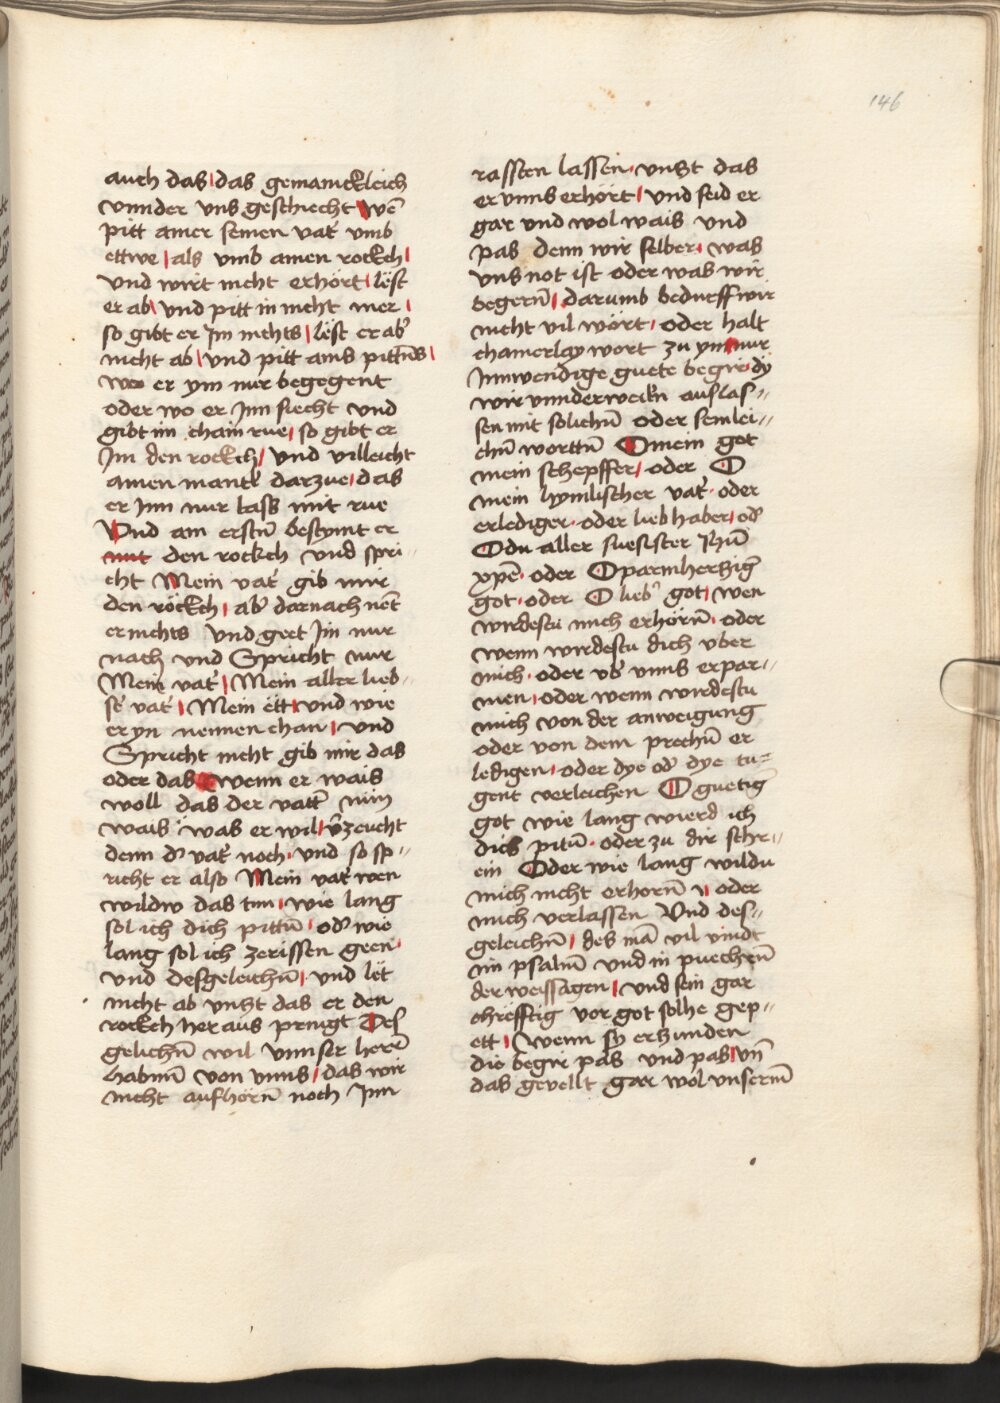 146
auch das das gemainckleich
vnnder vns geschiecht wē
pitt ainer seinen vat̓ vmb
ettwe als vmb ainen rockch
vnd wirt nicht erhört lëst
er ab vnd pitt in nicht mer
so gibt er Im nichts lëst er ab̓
nicht ab vnd pitt ains pittn̄s
wo er ym nur begegent
oder wo er Inn siecht vnd
gibt im chain rue so gibt er
Im den rockch vnd villeicht
ainen mantl̓ darzue das
er Inn nur lass mit rue
Vnd am erstn̄ bestymt er
mit den rockch vnd spri⸗
cht Mein vat̓ gib mir
den röckch ab̓ darnach nēt
er nichts vnd geet Im nur
nach vnd Spricht nur
Mein vat̓ Mein aller lieb⸗
st̓ vat̓ Mein ëtt vnd wie
er yn nennen chan vnd
Spricht nicht gib mir das
oder das wenn er wais
woll das der vatt̓ nun
wais was er wil v̄zeucht
denn d̓ vat̓ noch vnd so sp⸗
richt er also Mein vat̓ wen
wildw das tun wie lang
sol ich dich pittn̄ od̓ wie
lang sol ich zerissen geen
vnd desgeleichn̄ vnd lët
nicht ab vnꜩt das er den
rockch her aus pringt Des
geliechn̄ wil vnnser herr̄
habm̄ von vnns das wir
nicht aufhörn̄ noch Inn
rassten lassen vnꜩt das
er vnns erhört vnd seid er
gar vnd wol wais vnd
pas denn wir selber was
vns not ist oder was wir
begern̄ darumb bedurff wir
nicht vil wört oder halt
chainerlay wort zu ym nur
Innwendige guete begir dy
wir vnnderweiln auslas⸗
sen mit solichn̄ oder semlei⸗
chn̄ wortn̄ O mein got
mein schepffer oder O
mein hymlischer vat̓ oder
erlediger oder liebhaber od̓
O du aller suesister Ihū
xpē oder O parmherczig̓
got oder O lieb̓ got wen
wirdestu mich erhörn̄ oder
wenn wirdestu dich vber
mich oder vb̓ vnns erpar⸗
men oder wenn wirdestu
mich von der anweigung
oder von dem prechn̄ er
ledigen oder dye od̓ dye tu⸗
gent verleichen O guetig̓
got wie lang wierd ich
dich pitn̄ oder zu dir schr⸗
ein Oder wie lang wildu
mich nicht erhorn̄ oder
mich verlassen Vnd des⸗
geleichn̄ des mā vil vindt
im psalm̄ vnd in puechern̄
der weissagen vnd sein gar
chrefftig vor got solhe gep⸗
ett Wenn sy erzunden
die begir pas vnd pas vn̄
das gevellt gar wol vnserm̄